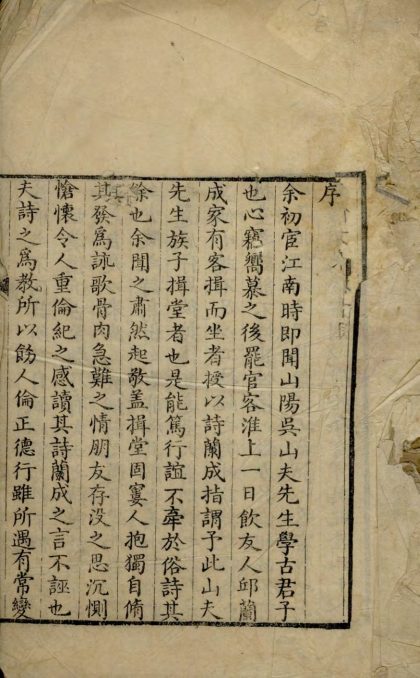 序
余初宦江南時即聞山陽吳山夫先生學古君子
也心竊嚮慕之後罷官客淮上一日飲友人邱蘭
成家有客揖而坐者授以詩蘭成指謂予此山夫
先生族子揖堂者也是能篤行誼不牽於俗詩其
餘也余聞之肅然起敬盖揖堂固寠人抱獨自脩
其發爲詠歌骨肉急難之情朋友存没之思沉惻
愴懷令人重倫紀之感讀其詩蘭成之言不誣也
夫詩之爲教所以飭人倫正德行雖所遇有常變